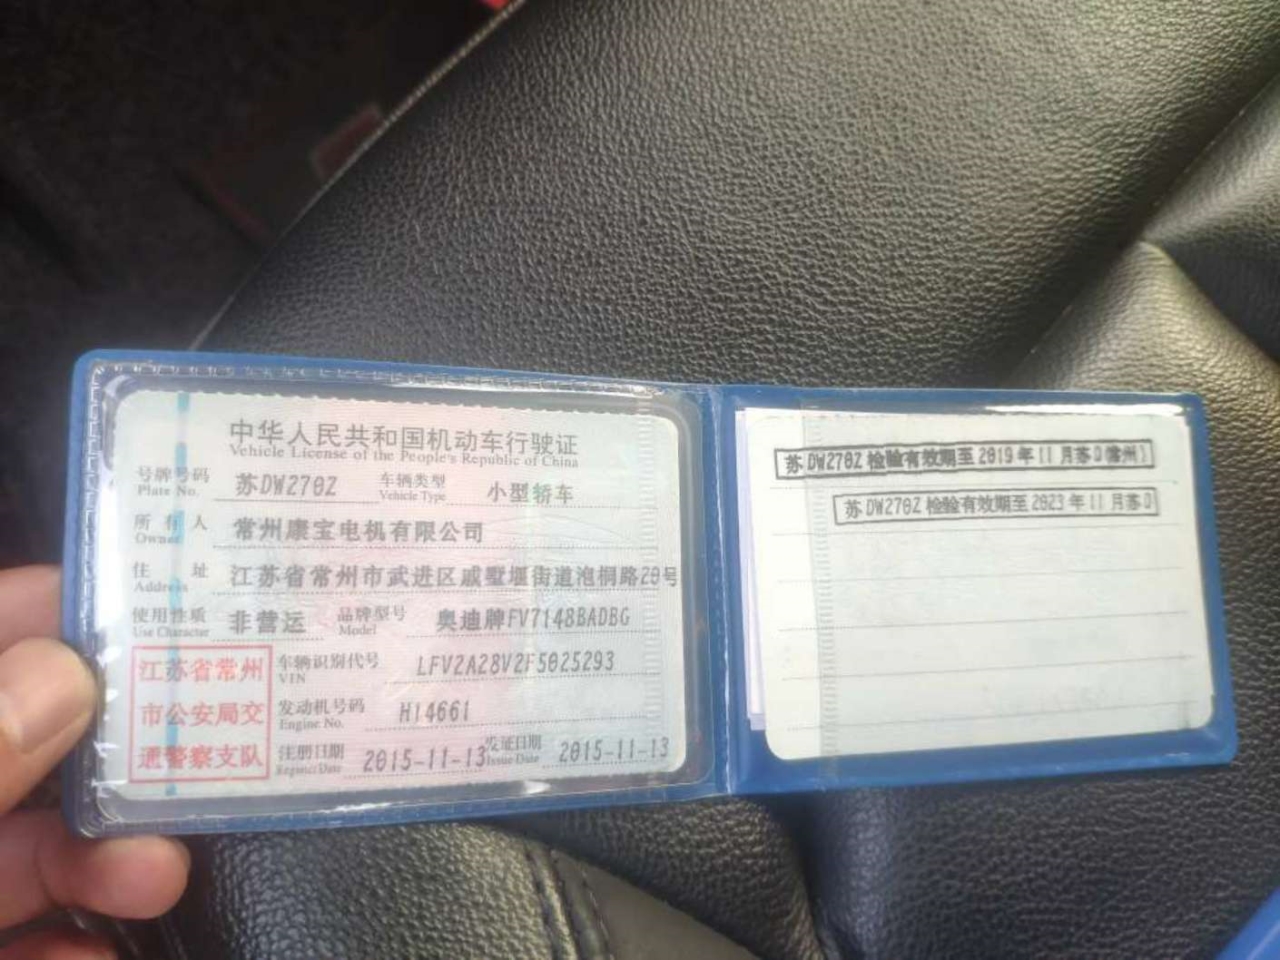 中华人民共和国机动车行驶证
Vehicle License of the People's Republic of China
号牌号码 苏DW270Z 车辆类型 小型轿车
Plate No. Vehicle Type
所有人 常州康宝电机有限公司
Owner
住址 江苏省常州市武进区戚墅堰街道泡桐路20号
Address
使用性质 非营运 品牌型号 奥迪牌FV7148BADBG
Use Character Model
江苏省常州 车辆识别代号 LFV2A28V2F5025293
VIN
市公安局交 发动机号码 H14661
Engine No.
通警察支队 注册日期 2015-11-13 发证日期 2015-11-13
Register Date Issue Date
苏DW270Z检验有效期至2019年11月苏D(常州)
苏DW270Z检验有效期至2023年11月苏D